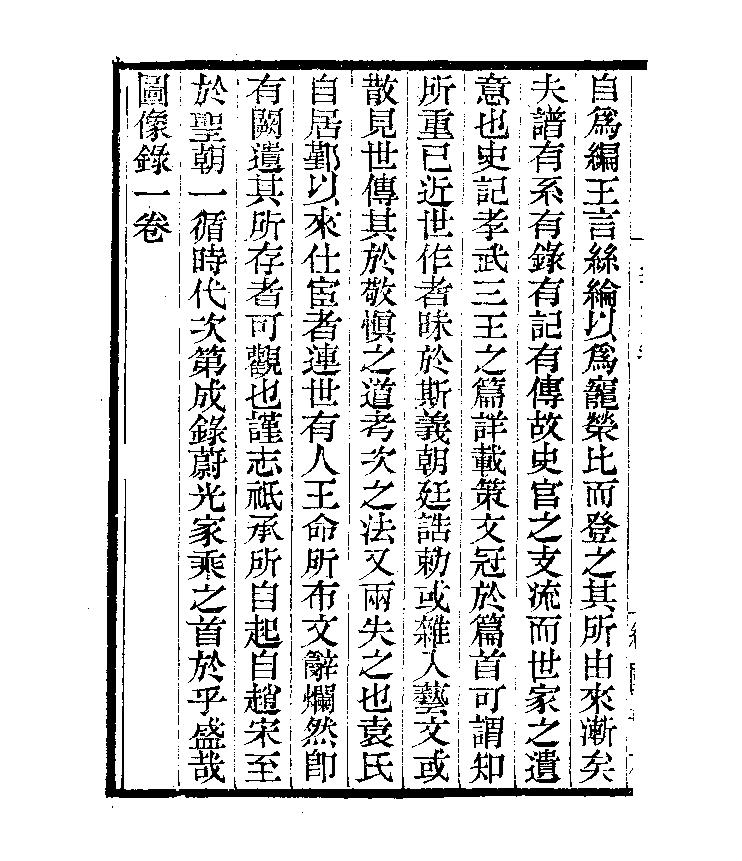 自爲編王言絲綸以爲寵榮比而登之其所由來漸矣
夫譜有系有錄有記有傳故史官之支流而世家之遺
意也史記孝武三王之篇詳載策文冠於篇首可謂知
所重已近世作者昧於斯義朝廷誥勅或雜入藝文或
散見世傳其於敬慎之道考次之法又兩失之也袁氏
自居鄞以來仕宦者連世有人王命所布文辭爛然卽
有闕遺其所存者可觀也謹志祇承所自起自趙宋至
於聖朝一循時代次第成錄蔚光家乘之首於乎盛哉
圖像錄一卷